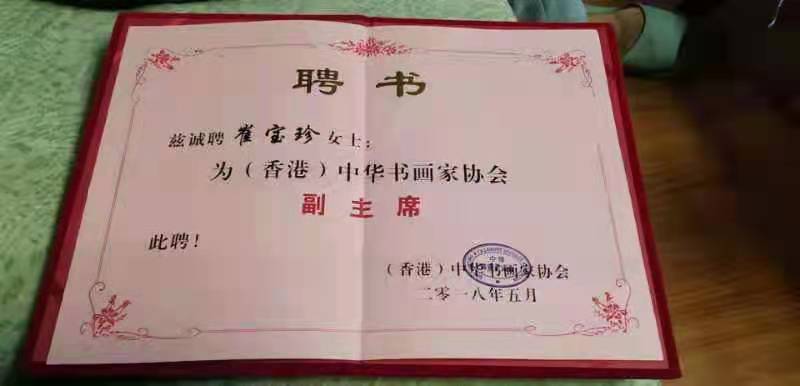 聘书
兹诚聘 崔宝珍 女士：
为（香港）中华书画家协会
副主席
此聘！
（香港）中华书画家协会
二零一八年五月